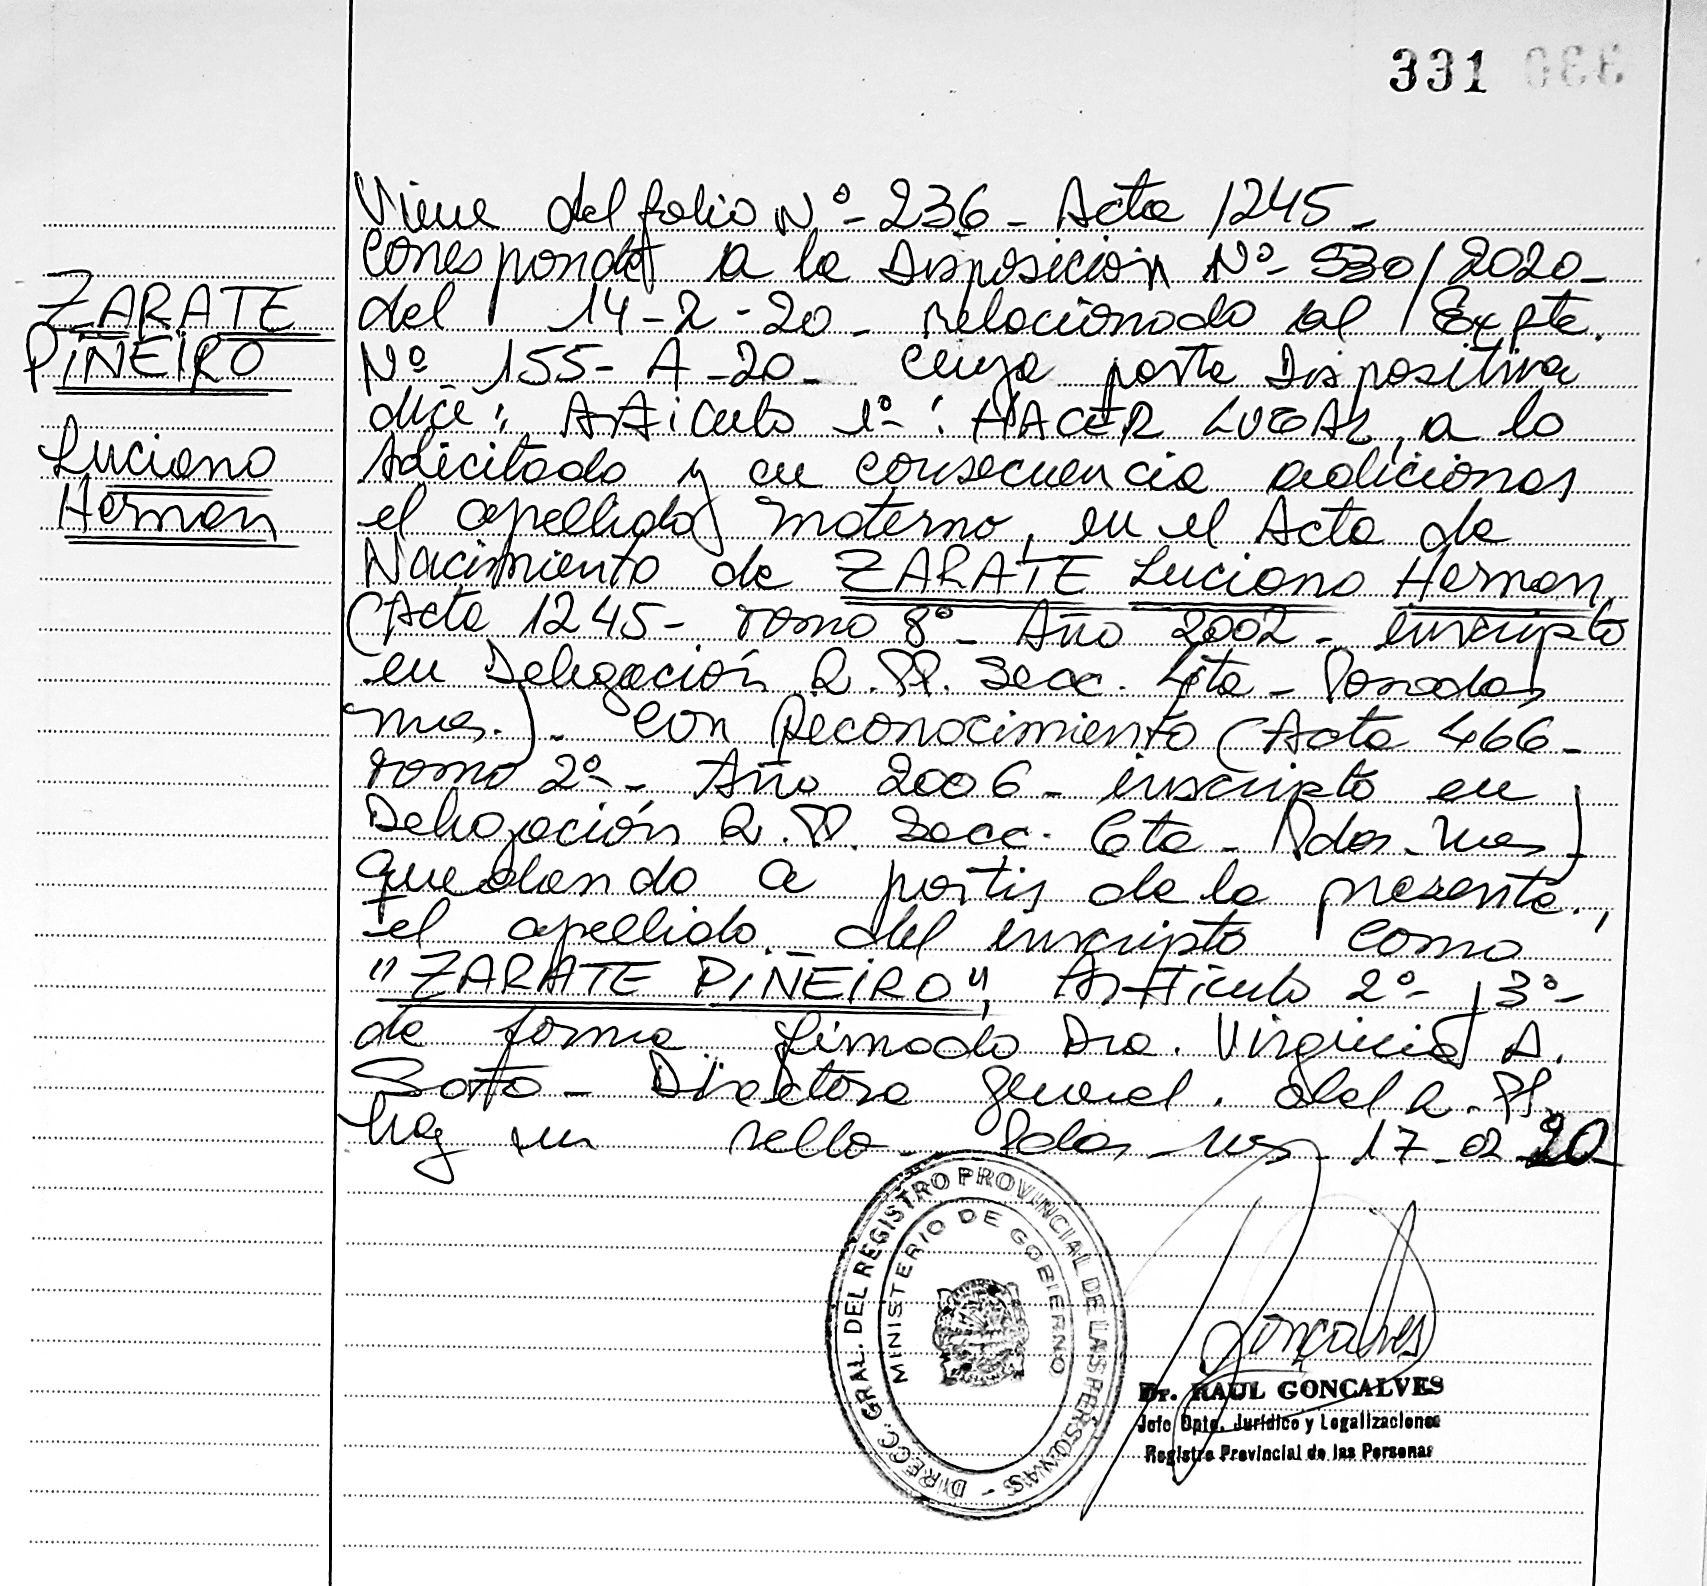 331
ZARATE
PIÑEIRO
Luciano
Hernan
Viene del folio Nº- 236 - Acta 1245 -
Corresponde a la Disposición Nº- 530/2020 -
del 14-2-20 - relacionado al Expte.
Nº 155- A -20 - cuya parte Dispositiva
dice: Articulo 1º: HACER LUGAR, a lo
solicitado y en consecuencia adicionar
el apellido materno, en el Acta de
Nacimiento de ZARATE Luciano Hernan
(Acta 1245 - Tomo 8º - Año 2002 - inscripto
en Delegación R.P.P. Secc. 4ta - Posadas
Mnes.). Con Reconocimiento (Acta 466 -
Tomo 2º - Año 2006 - inscripto en
Delegación R.P.P. Secc. 6ta - Pdas - Mnes)
quedando a partir de la presente.,
el apellido del inscripto como
"ZARATE PIÑEIRO", Artículo 2º - 3º -
de forma. Firmado Dra. Virginia A.
Directora General. del R.P.P.
hay un sello - Pdas - Mnes - 17-02-20 -
DIRECC. GRAL. DEL REGISTRO PROVINCIAL DE LAS PERSONAS -
MINISTERIO DE GOBIERNO
Gonçalves
Dr. RAUL GONCALVES
Jefe Dpto. Jurídico y Legalizaciones
Registro Provincial de las Personas